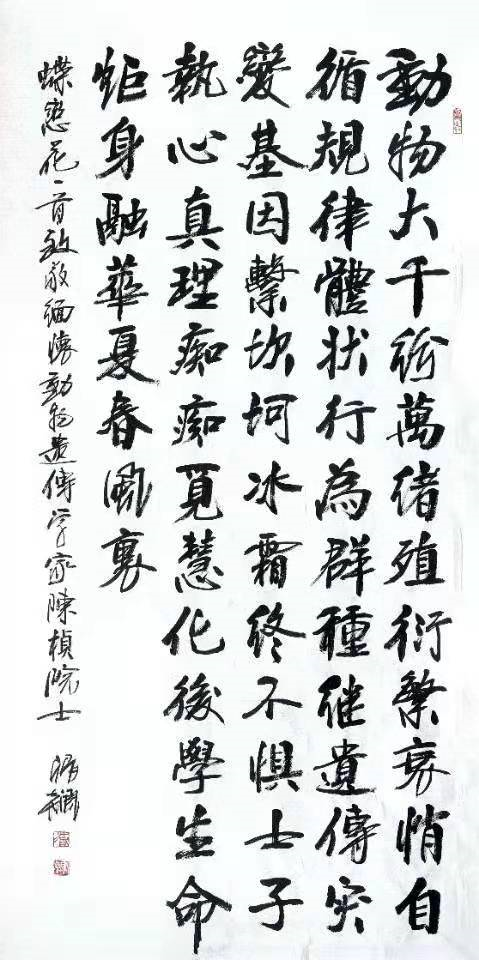 動物大千紛萬緒殖衍繁衰悄自
循規律體狀行為群種継遺傳突
變基因繫坎坷冰霜終不懼士子
執心真理痴痴覓慧化後學生命
炬身融華夏春風裏
蝶戀花一首致敬緬懷動物遺傳学家陳楨院士